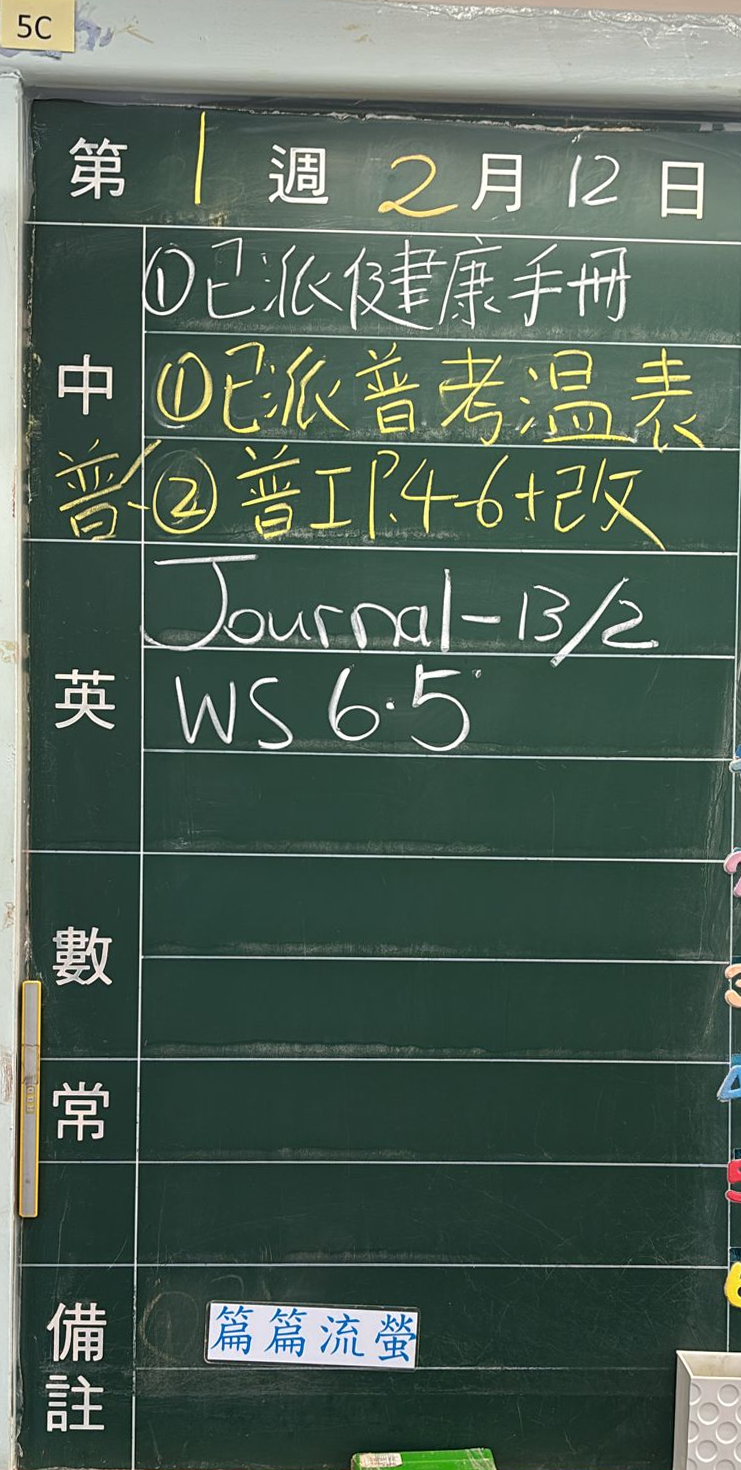 5C
第 1 週 2 月 12 日
中
①已派健康手冊
①已派普考温表
普
②普工P.4-6+改
英
Journal-13/2
WS 6.5
數
常
備註
篇篇流螢